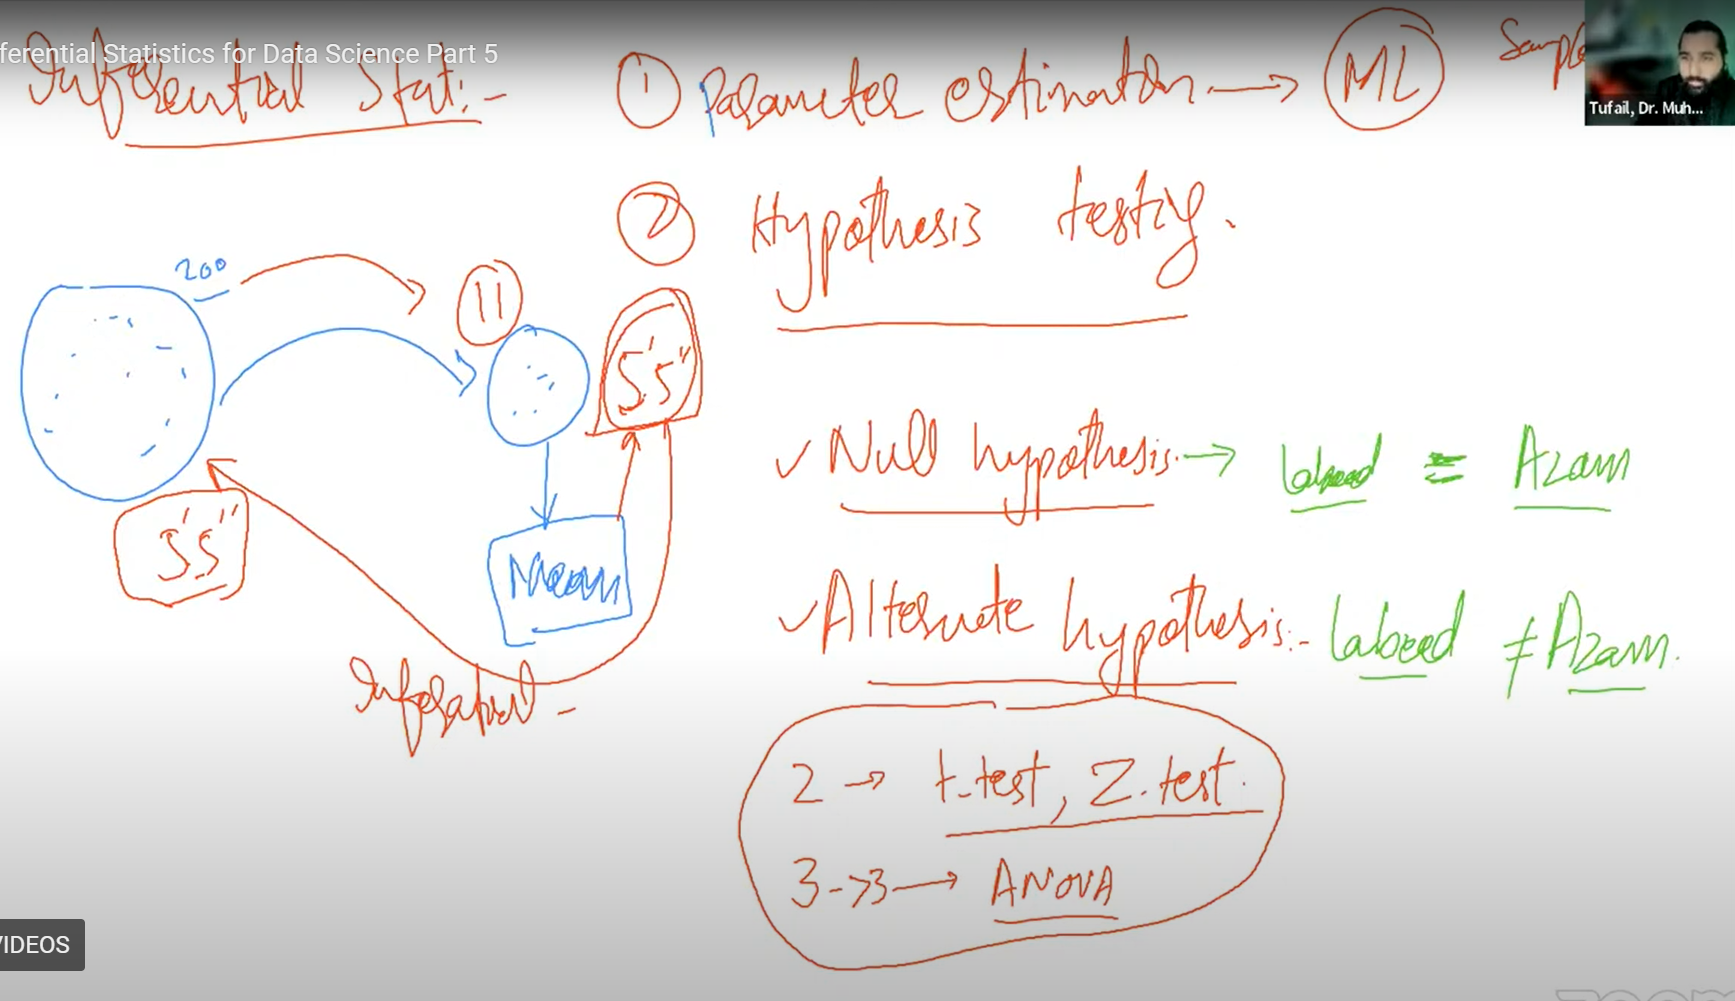 ferential Statistics for Data Science Part 5
Inferential Stat:-
① Parameter estimation → ML
Sample
Tufail, Dr. Muh...
② Hypothesis testing.
200
11
5'5"
✓ Null hypothesis → labeed = Azam
5'5"
Mean
✓ Alternate hypothesis:- labeed ≠ Azam.
2 → t-test, Z-test.
3->3 → ANOVA
VIDEOS
zoom